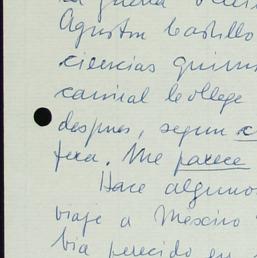 la guerra
Agustín Castillo
ciencias quím
carnial College
despues, segun c
fera. Me parece
Hace alguno
viaje a Mexico
bia perecido en